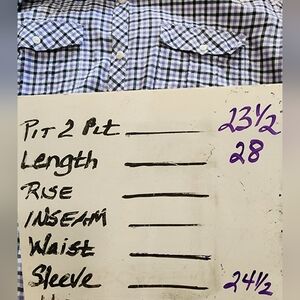 Pit 2 Pit 23 1/2
Length 28
Rise
INSEAM
Waist
Sleeve 24 1/2